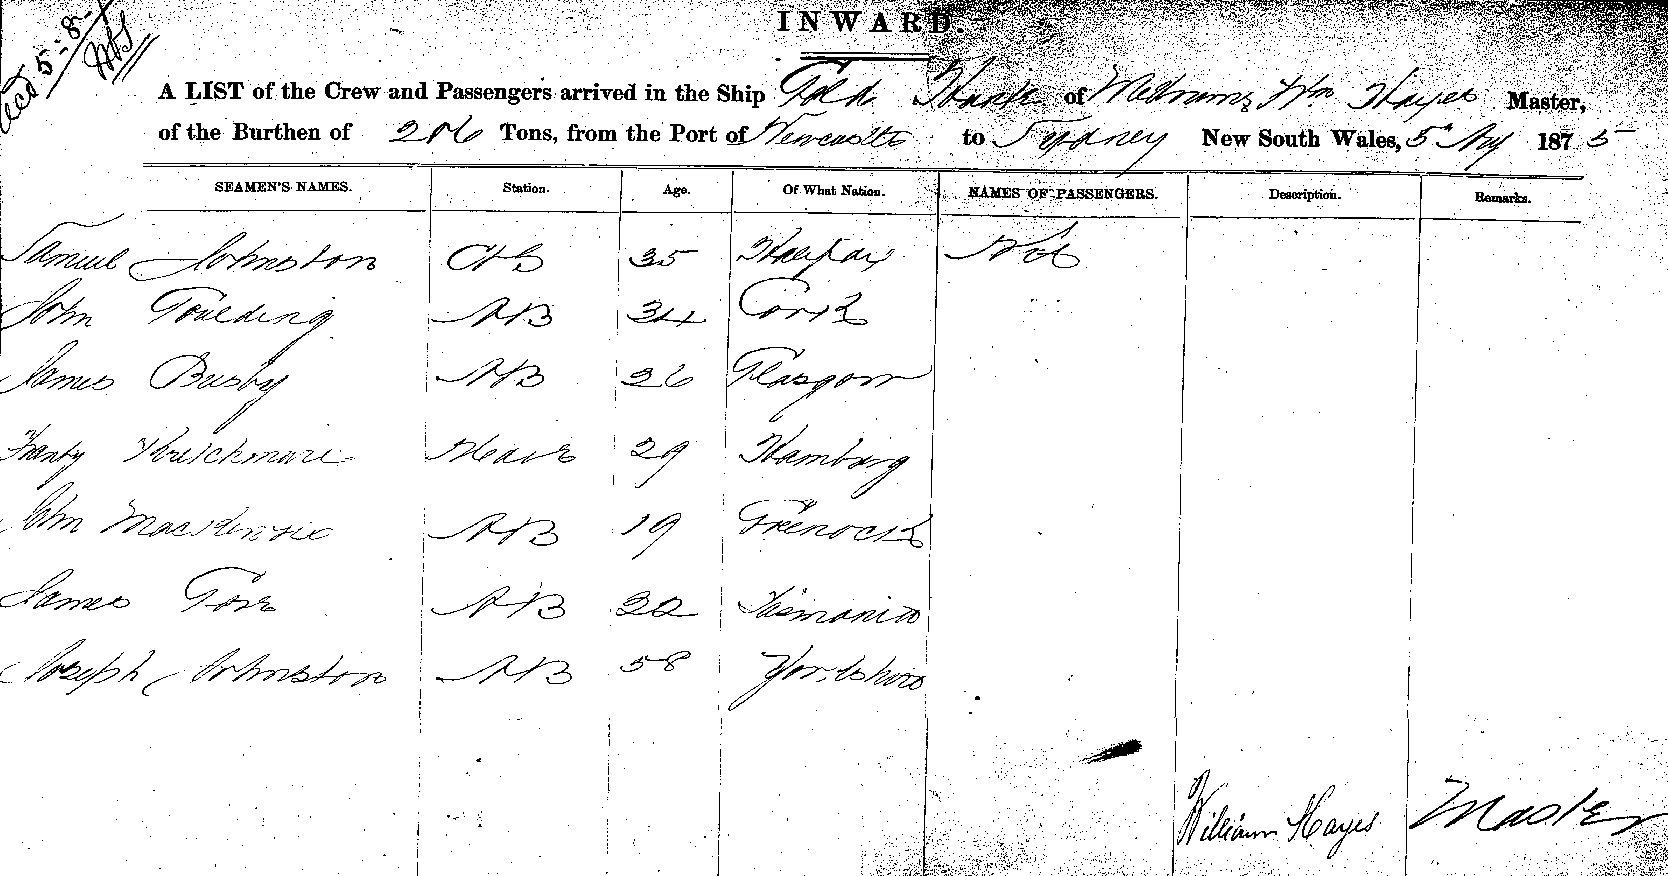 Recd 5-8-
INWARD.
A LIST of the Crew and Passengers arrived in the Ship Gold Hunter of Melbourne, Wm Hayes Master,
of the Burthen of 206 Tons, from the Port of Newcastle to Sydney New South Wales, 5th Aug 1875
SEAMEN'S NAMES. Station. Age. Of What Nation. NAMES OF PASSENGERS. Description. Remarks.
Samuel Johnston 35 Halifax
John Goulding AB 34 Cork
James Busby AB 26 Glasgow
29 Hamburg
John MacKenzie AB 19 Greenock
James AB 22 Tasmania
Joseph Johnston AB 58 Yorkshire
William Hayes Master